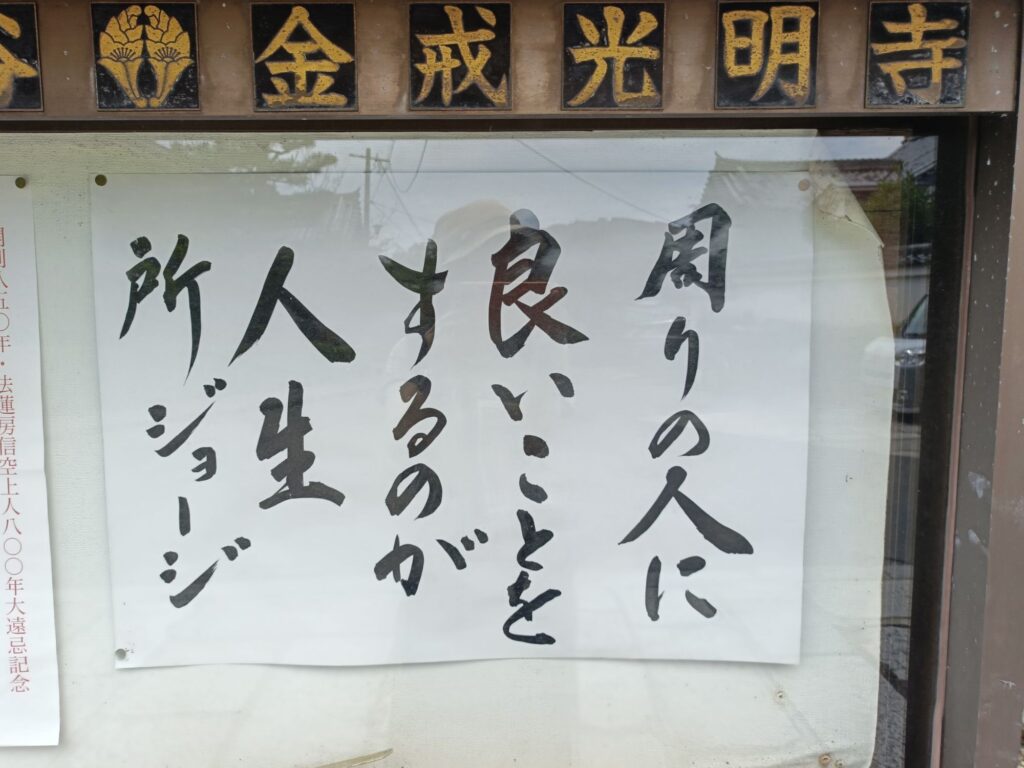 金戒光明寺
周りの人に
良いことを
するのが
人生
所ジョージ
年・法蓮房信空上人八〇〇年大遠忌記念